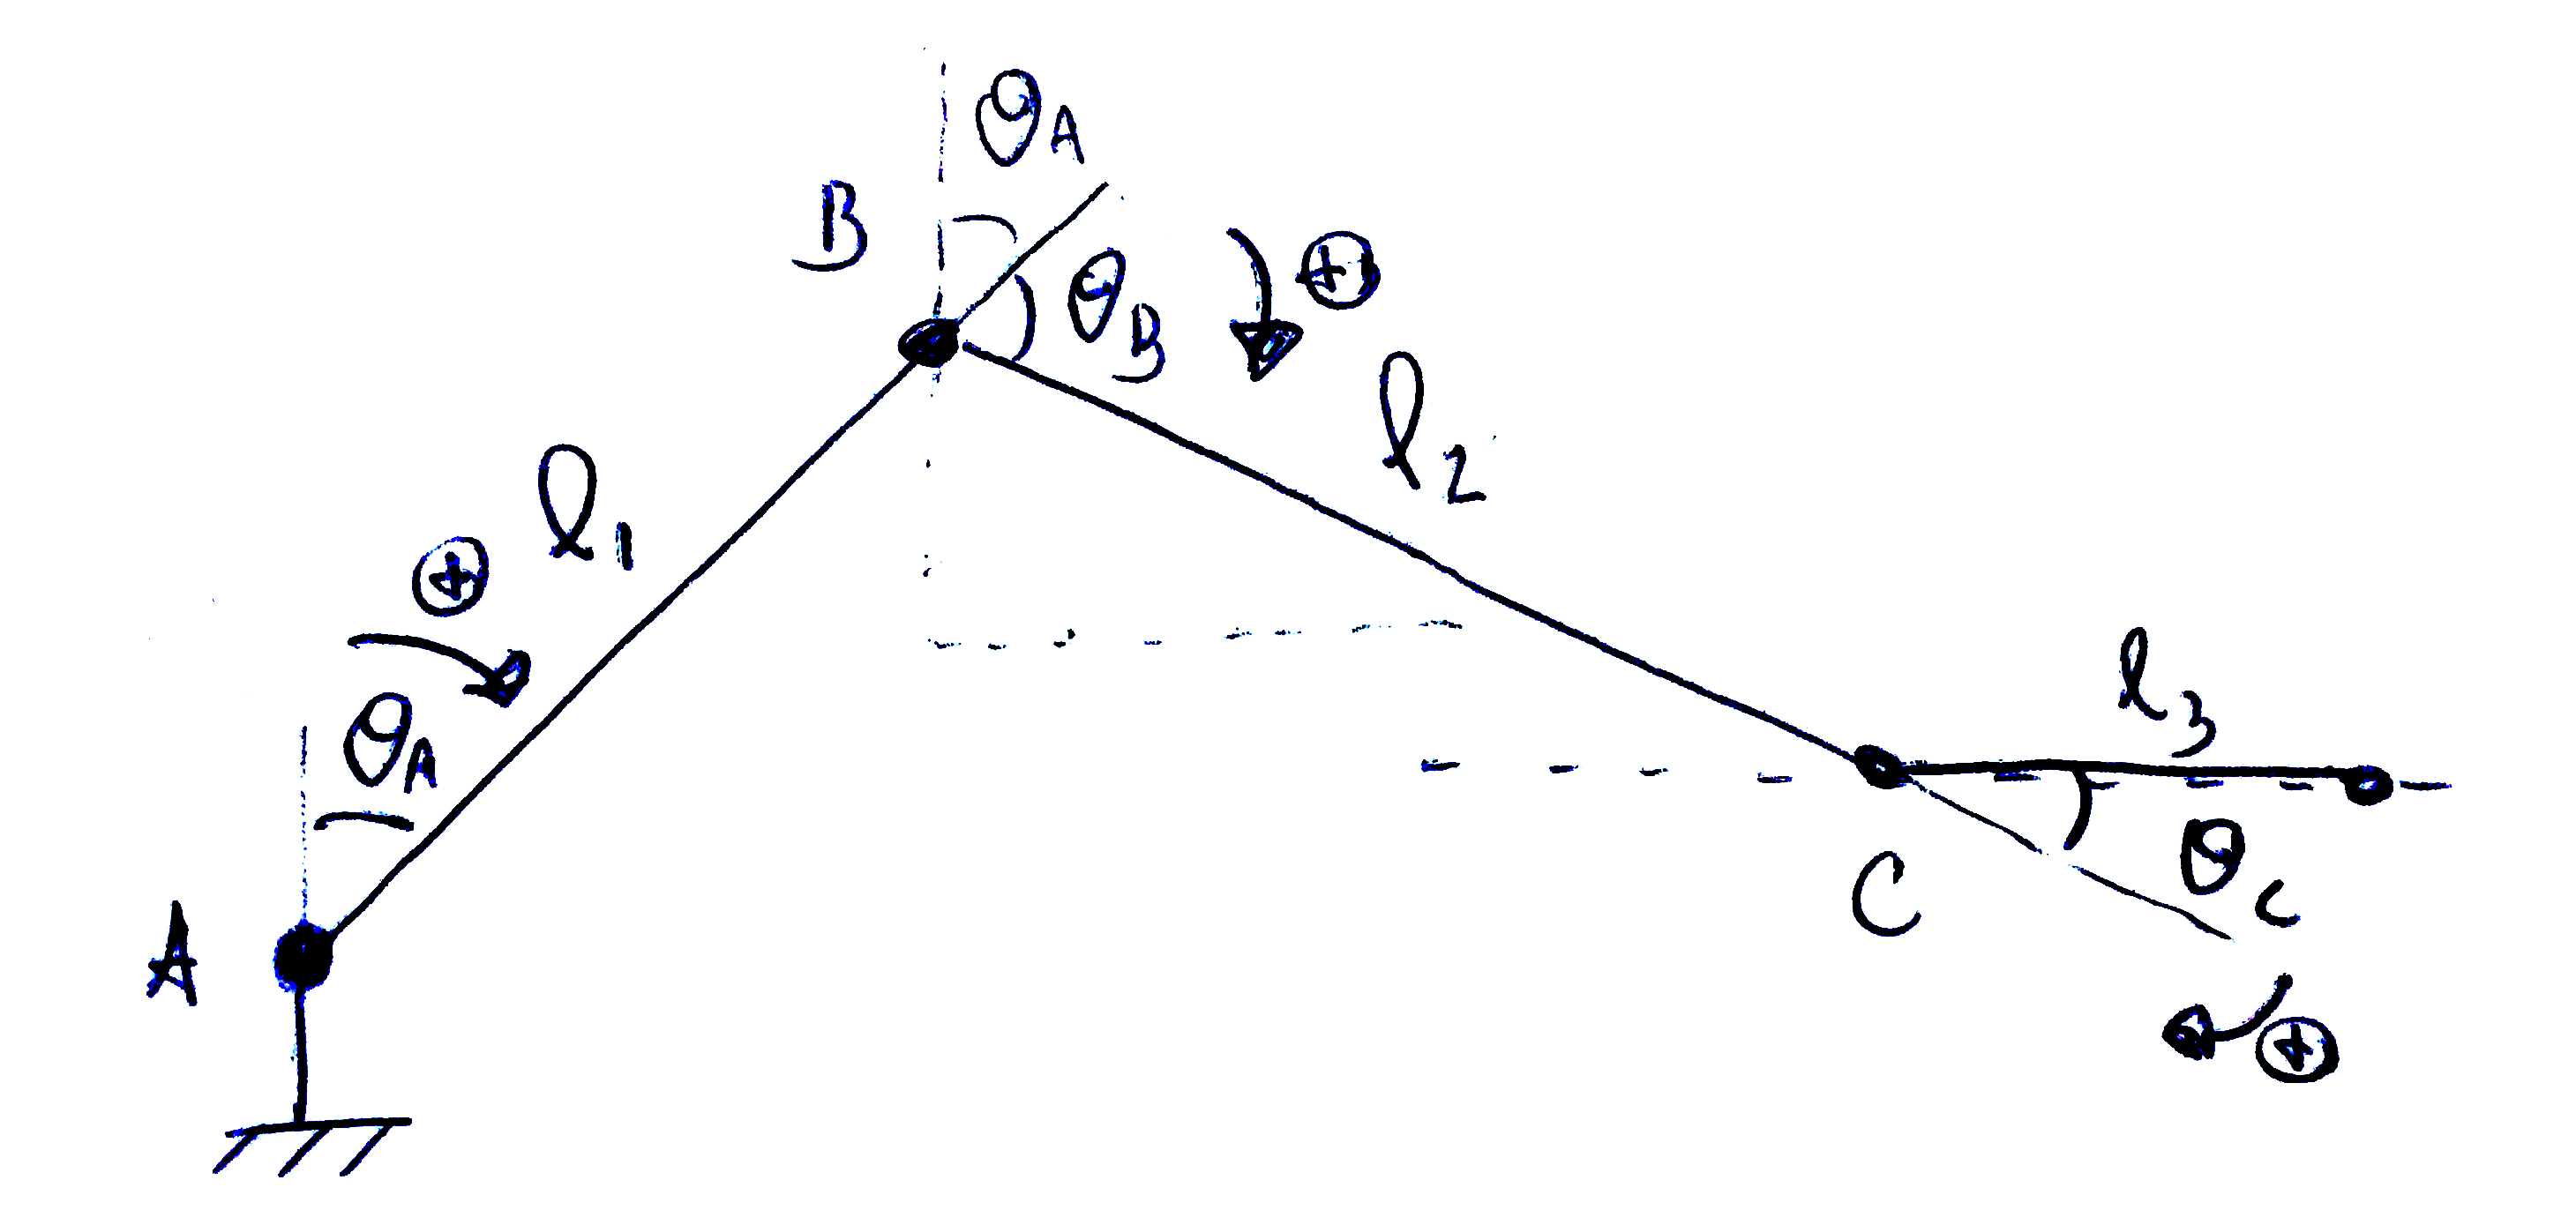 θA
B
θB
⊕
l2
l1
⊕
θA
l3
A
C
θc
⊕